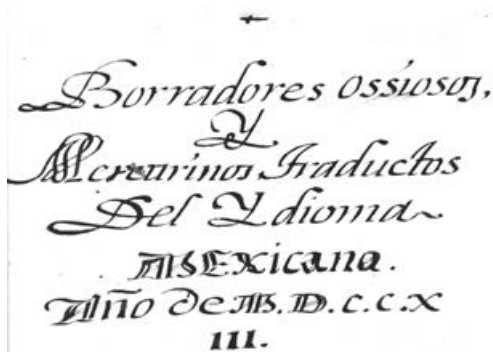 Borradores ossiosos,
Y
Mercurinos Traductos
Del Ydioma
Mexicana.
Año de M.D.C.C.X
III.